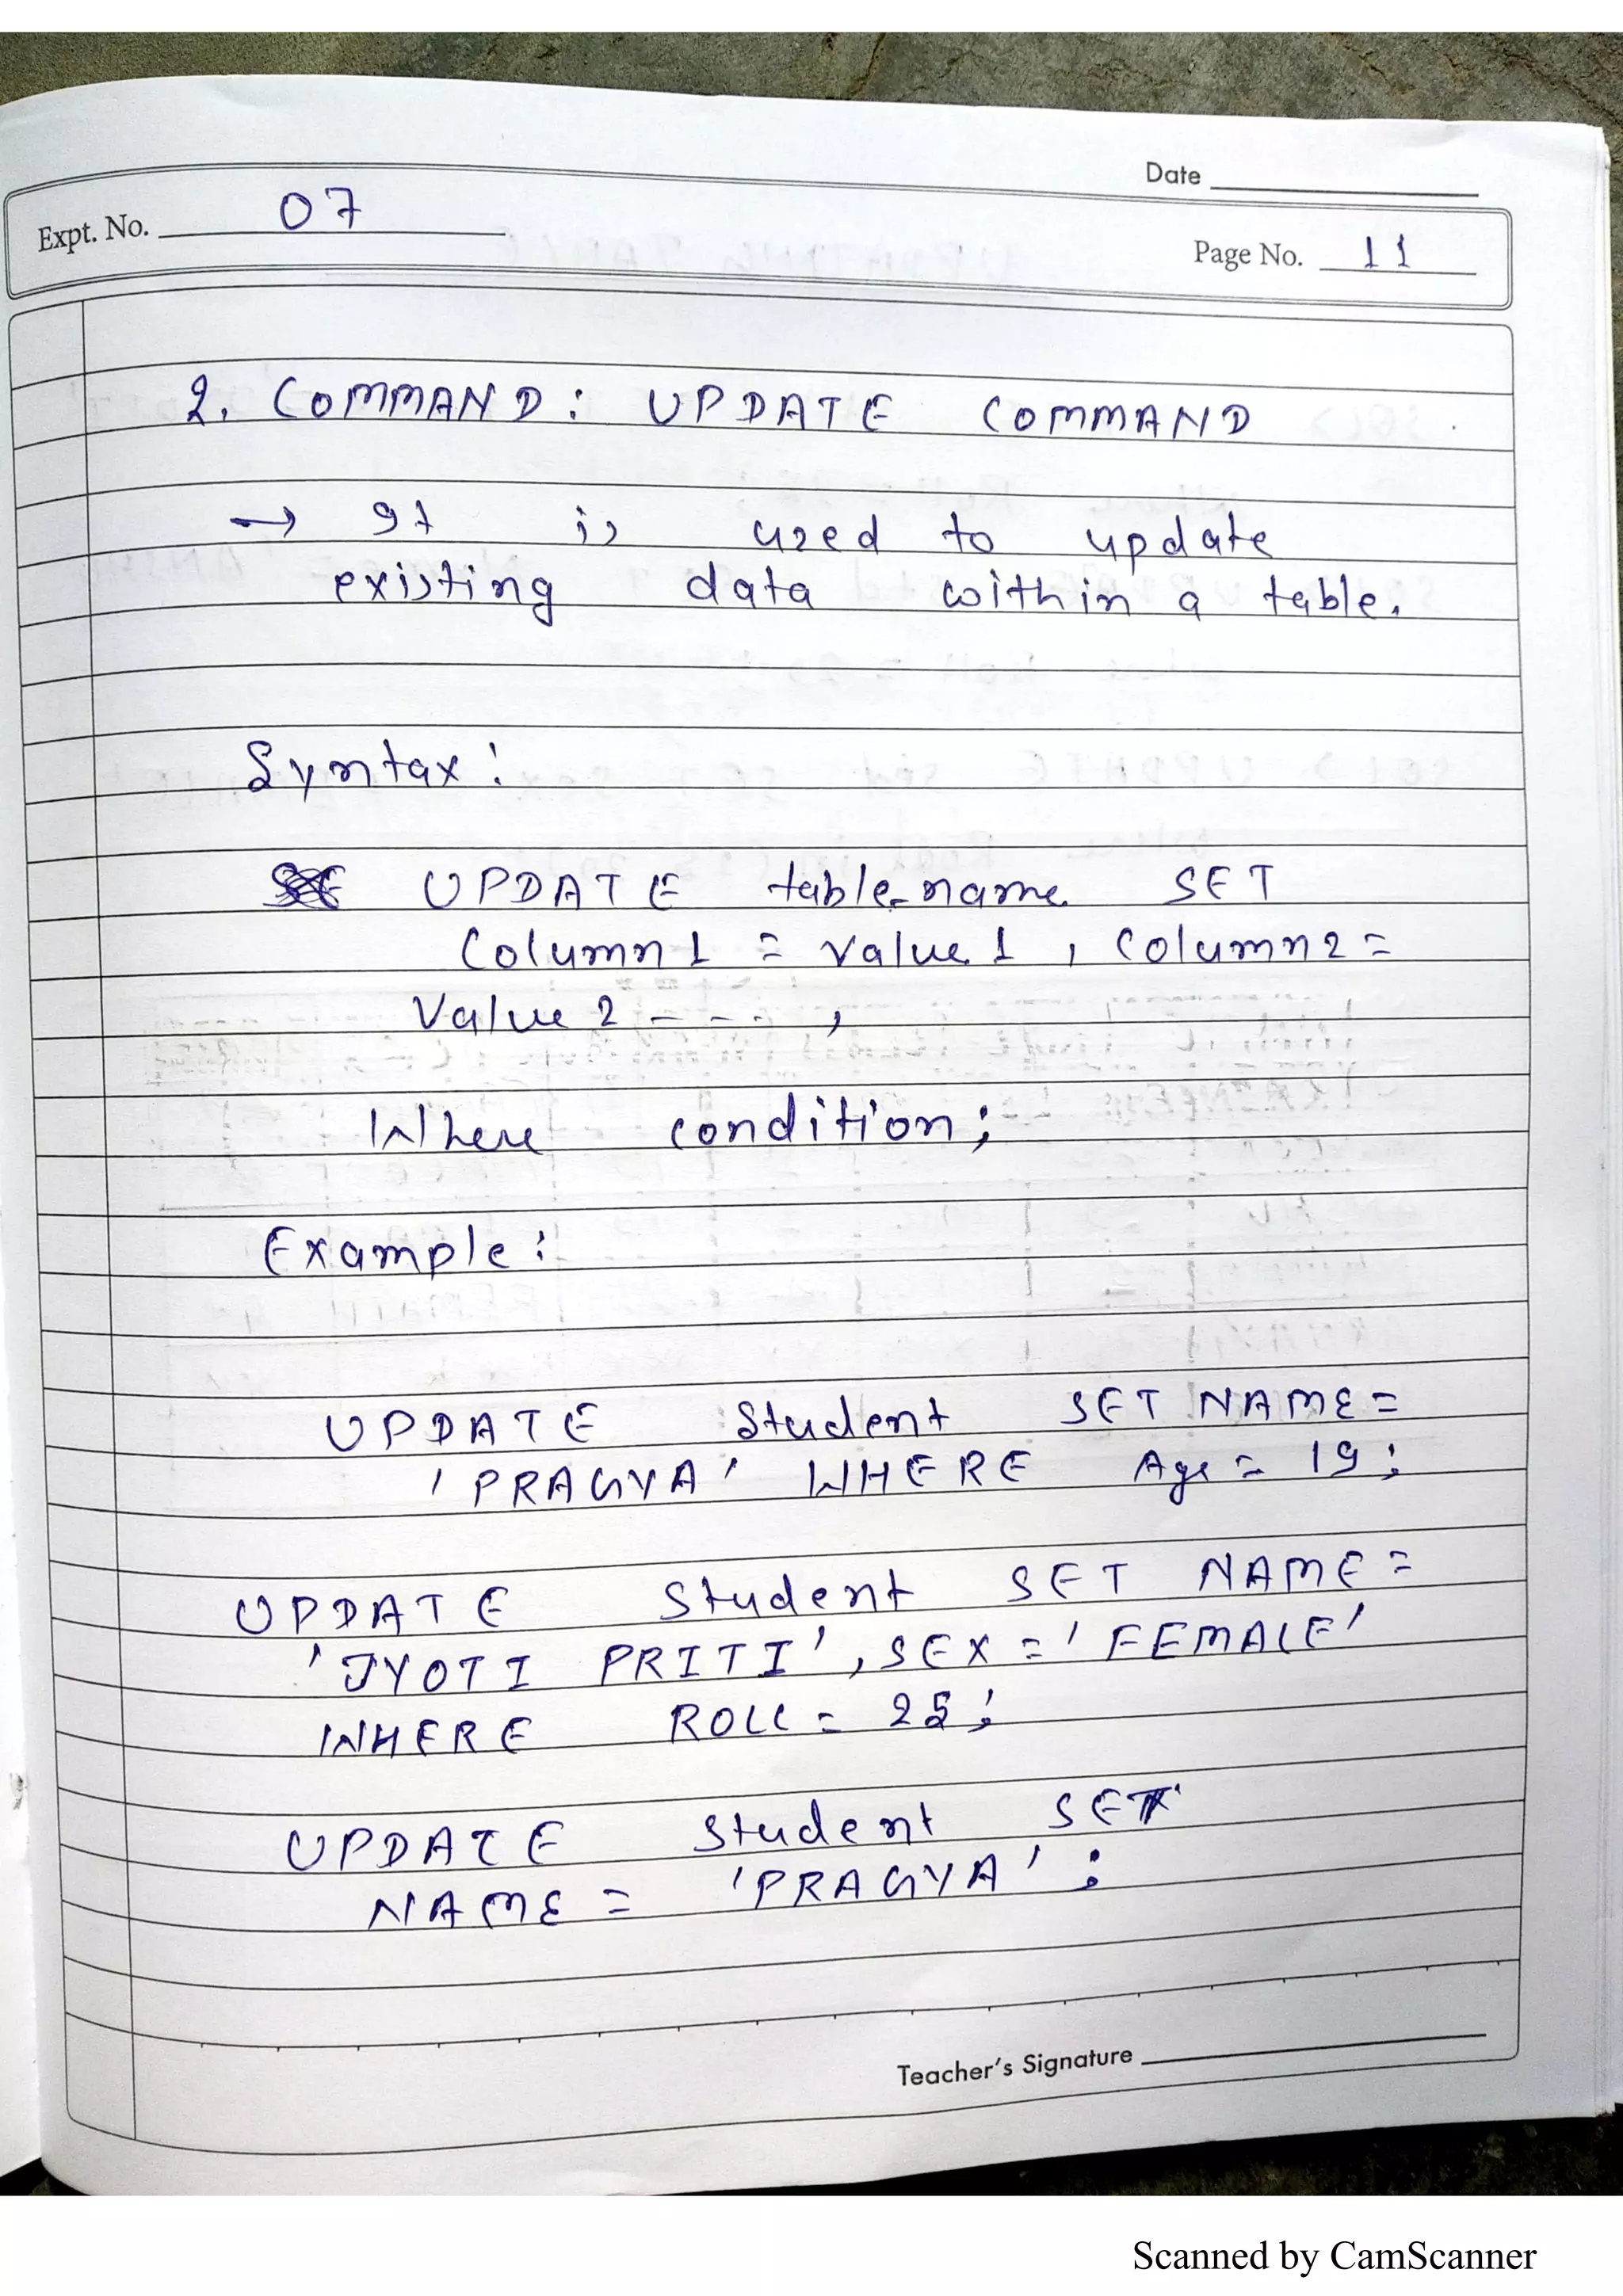 Date
Expt. No. 07
Page No. 11
2. COMMAND: UPDATE COMMAND
→ It is used to update
existing data within a table.
Syntax:
UPDATE table_name SET
Column1 = Value1, Column2 =
Value2 - - - - ,
Where condition;
Example:
UPDATE Student SET NAME =
'PRAGYA' WHERE Age = 19;
UPDATE Student SET NAME =
'JYOTI PRITI', SEX = 'FEMALE'
WHERE ROLL = 25;
UPDATE Student SET
NAME = 'PRAGYA';
Teacher's Signature
Scanned by CamScanner